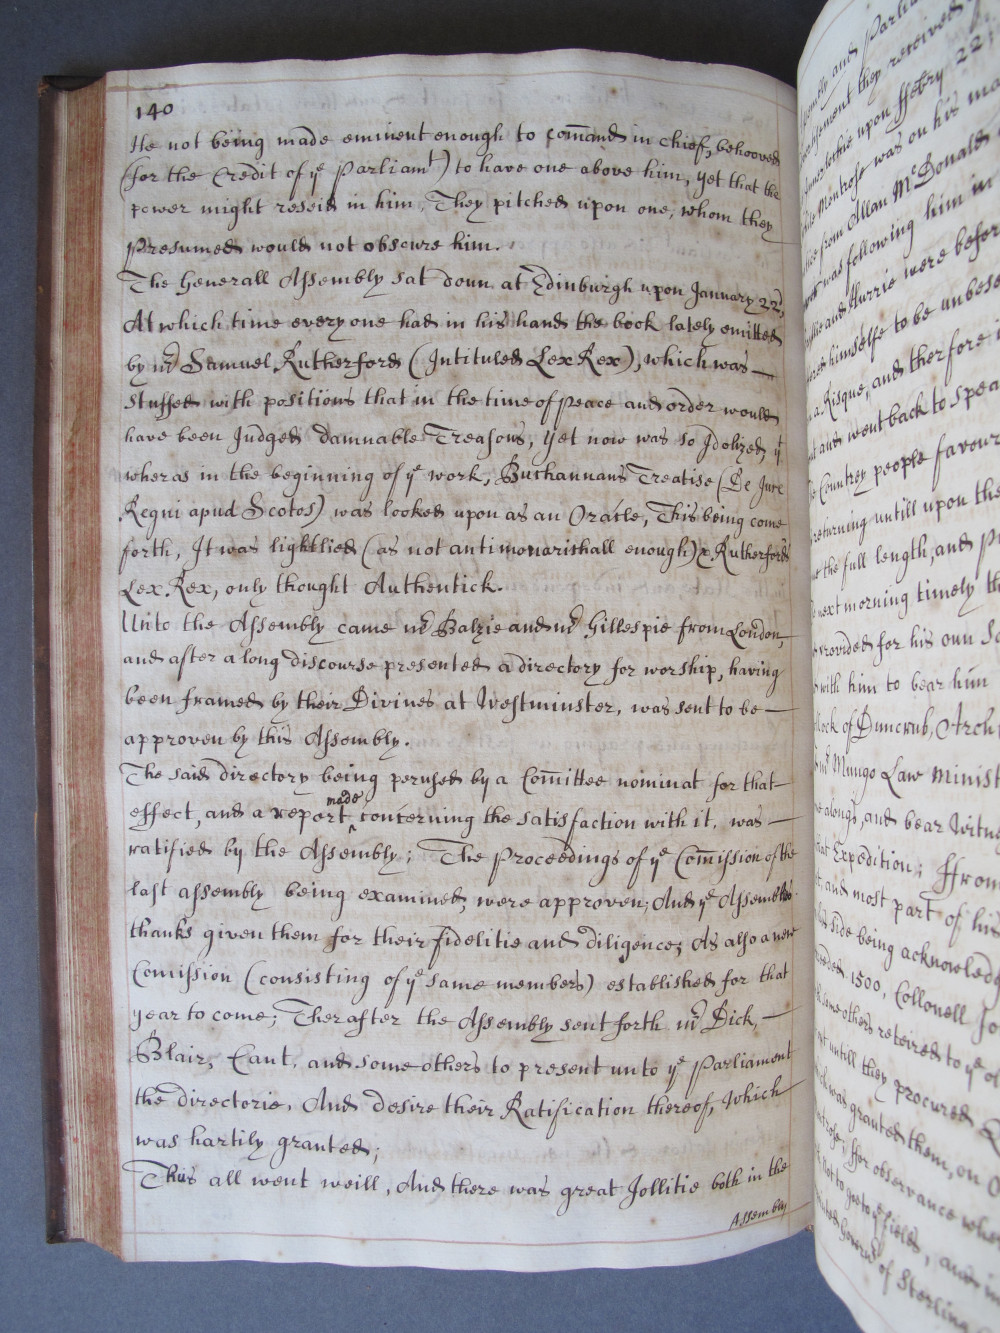 140
He not being made eminent enough to com̄and in chief, behooved
(for the Credit of yᵉ Parliamᵗ) to have one above him, yet that the
power might reseid in him, They pitched upon one, whom they
Presumed would not obscure him.
The Generall Assembly sat doun at Edinburgh upon January 22ᵈ,
At which time every one had in his hand the book lately emitted
by mʳ Samuel Rutherford (Intituled Lex Rex), which was —
stuffed with positions that in the time of peace and order would
have been Judged damnable Treasons, yet now was so Idolized, yᵗ
wheras in the beginning of yᵉ work, Buchannans Treatise (De Jure
Regni apud Scotos) was looked upon as an Oracle, This being come
forth, It was lightlied (as not antimonarichall enough) & Rutherfords
Lex Rex, only thought Authentick.
Unto the Assembly came mʳ Balzie and mʳ Gillespie from London,
and after a long discourse presented a directory for worship, having
been framed by their Divines at Westminster, was sent to be —
approven by this Assembly.
The said directory being perused by a Com̄ittee nominat for that —
effect, and a report made concerning the satisfaction with it, was —
ratified by the Assembly; The Proceedings of yᵉ Com̄ission of the
last assembly being examined, were approven, And yᵉ Assemblies
thanks given them for their fidelitie and diligence; As also a new
Comission (consisting of yᵉ same members) established for that
year to come; Therafter the Assembly sent forth mʳ Dick, —
Blair, Cant, and some others to present unto yᵉ Parliament
the directorie, And desire their Ratification thereof, which
was hartily granted;
This all went weill, And there was great Jollitie both in the
Assembly
and Parlia
they received
upon ffebry 22
Montrose was on his ma
from Allan McDonald
was following him in
and Hurrie were befor
himselfe to be unbese
a Risque, and therfore
and went back to Spea
Countrey people favour
returning untill upon the
the full length, and
next morning timely th
provided for his own
with him to bear him
of Duncrub, Arch
Mungo Law Minist
along, and bear Witne
Expedition; ffrom
and most part of his
side being acknowledg
1500, Collonell Jo
some others retired to yᵉ
untill they procured
was granted them, on
for observance wher
not to
fields, and
of Sterling